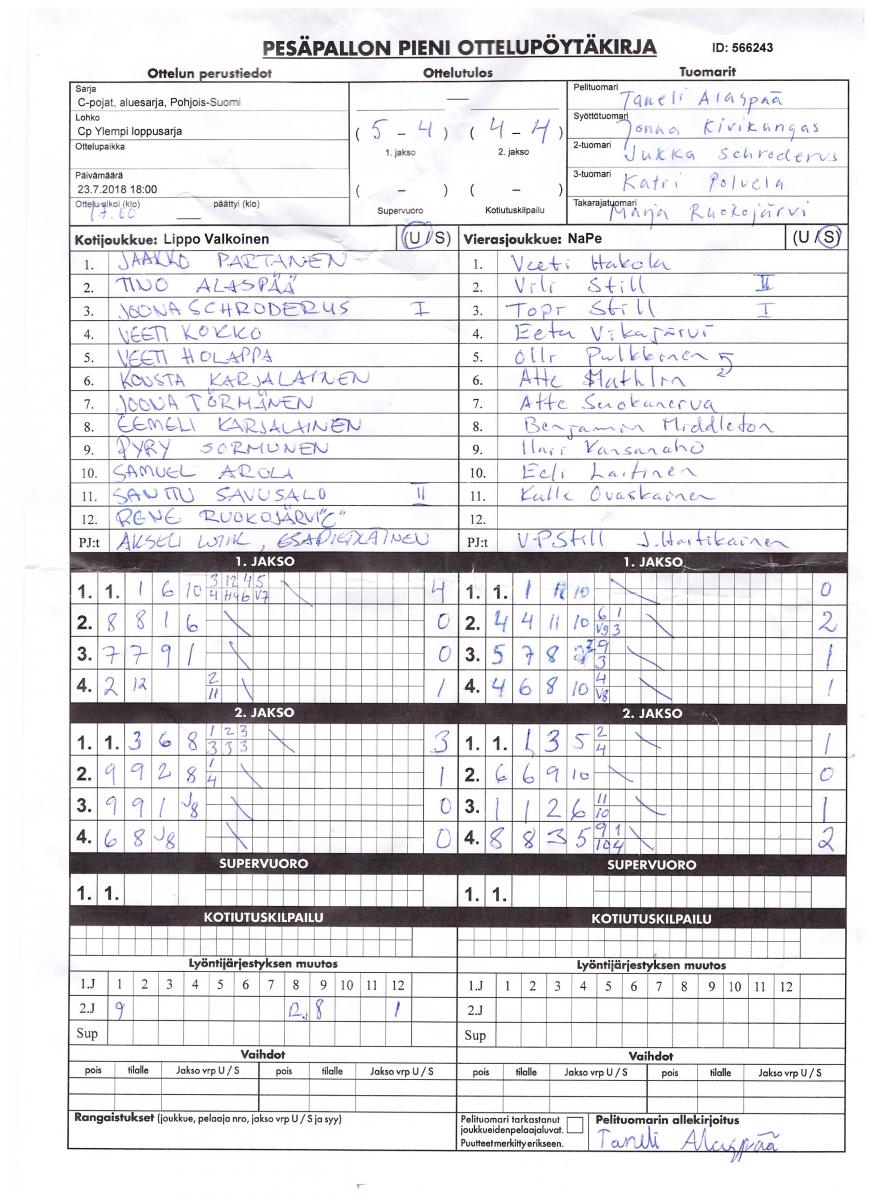 PESÄPALLON PIENI OTTELUPÖYTÄKIRJA ID: 566243
Ottelun perustiedot Ottelutulos Tuomarit
Sarja
C-pojat, aluesarja, Pohjois-Suomi
Lohko
Cp Ylempi loppusarja
Ottelupaikka
Päivämäärä
23.7.2018 18:00
Ottelu alkoi (klo) päättyi (klo)
—
( 5 - 4 ) ( 4 - 4 )
1. jakso 2. jakso
( - ) ( - )
Supervuoro Kotiutuskilpailu
Pelituomari Taneli Alaspää
Syöttötuomari Jonna Kivikangas
2-tuomari Jukka Schroderus
3-tuomari Katri Polvela
Takarajatuomari Marja Ruokojärvi
Kotijoukkue: Lippo Valkoinen (U / S)
1. JAAKKO PARTANEN
2. TINO ALASPÄÄ
3. JOONA SCHRODERUS I
4. VEETI KOKKO
5. VEETI HOLAPPA
6. KONSTA KARJALAINEN
7. JOONA TÖRMÄNEN
8. EEMELI KARJALAINEN
9. PYRY SORMUNEN
10. SAMUEL AROLA
11. SANTTU SAVUSALO II
12. RENE RUOKOJÄRVI "C"
PJ:t AKSELI WIIK,
Vierasjoukkue: NaPe (U / S)
1. Veeti Hakola
2. Vili Still II
3. Topi Still I
4. Eetu Vikajärvi
5. Olli Pulkkinen
6. Atte
7. Atte Suokanerva
8. Benjamin Middleton
9. Ilari Kansanaho
10. Eeli Laitinen
11. Kalle Ovaskainen
12.
PJ:t V-P Still J. Hartikainen
1. JAKSO
1. 1. 1 6 10 4
2. 8 8 1 6 0
3. 7 7 9 1 0
4. 2 12 2 11 1
2. JAKSO
1. 1. 3 6 8 1 2 3 3 3 3 3
2. 9 9 2 8 1 4 1
3. 9 9 1 J8 0
4. 6 8 J8 0
SUPERVUORO
1. 1.
KOTIUTUSKILPAILU
1. JAKSO
1. 1. 1 10 0
2. 4 4 11 10 6 1 V9 3 2
3. 5 7 8 9 3 1
4. 4 6 8 10 4 V8 1
2. JAKSO
1. 1. 1 3 5 2 4 1
2. 6 6 9 10 0
3. 1 1 2 6 11 10 1
4. 8 8 3 5 9 1 10 4 2
SUPERVUORO
1. 1.
KOTIUTUSKILPAILU
Lyöntijärjestyksen muutos
1.J 1 2 3 4 5 6 7 8 9 10 11 12
2.J 9 12, 8 1
Sup
Lyöntijärjestyksen muutos
1.J 1 2 3 4 5 6 7 8 9 10 11 12
2.J
Sup
Vaihdot
pois tilalle Jakso vrp U / S pois tilalle Jakso vrp U / S
Vaihdot
pois tilalle Jakso vrp U / S pois tilalle Jakso vrp U / S
Rangaistukset (joukkue, pelaaja nro, jakso vrp U / S ja syy)
Pelituomari tarkastanut
joukkueiden pelaajaluvat.
Puutteet merkitty erikseen.
Pelituomarin allekirjoitus
Taneli Alaspää